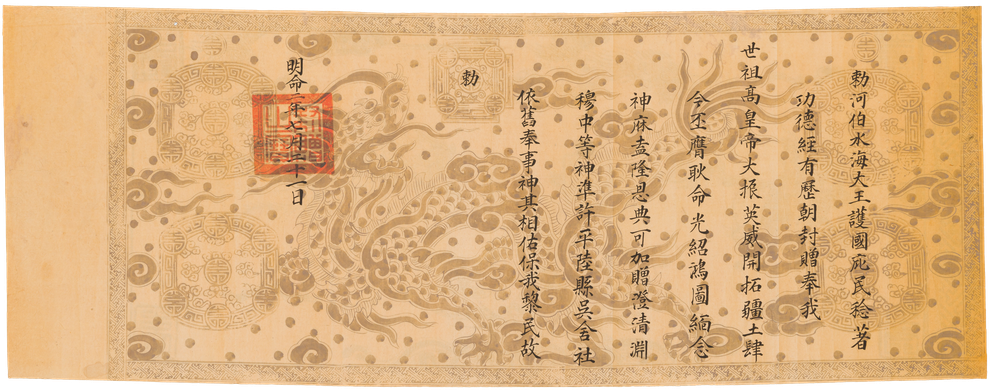 勅河伯水海大王護國庇民稔著
功德經有歷朝封贈奉我
世祖高皇帝大振英威開拓疆土肆
今丕膺耿命光紹鴻圖緬念
神庥盍隆恩典可加贈澄清淵
穆中等神準許平陸縣吳舍社
依舊奉事神其相佑保我黎民故
勅
明命二年七月二十一日